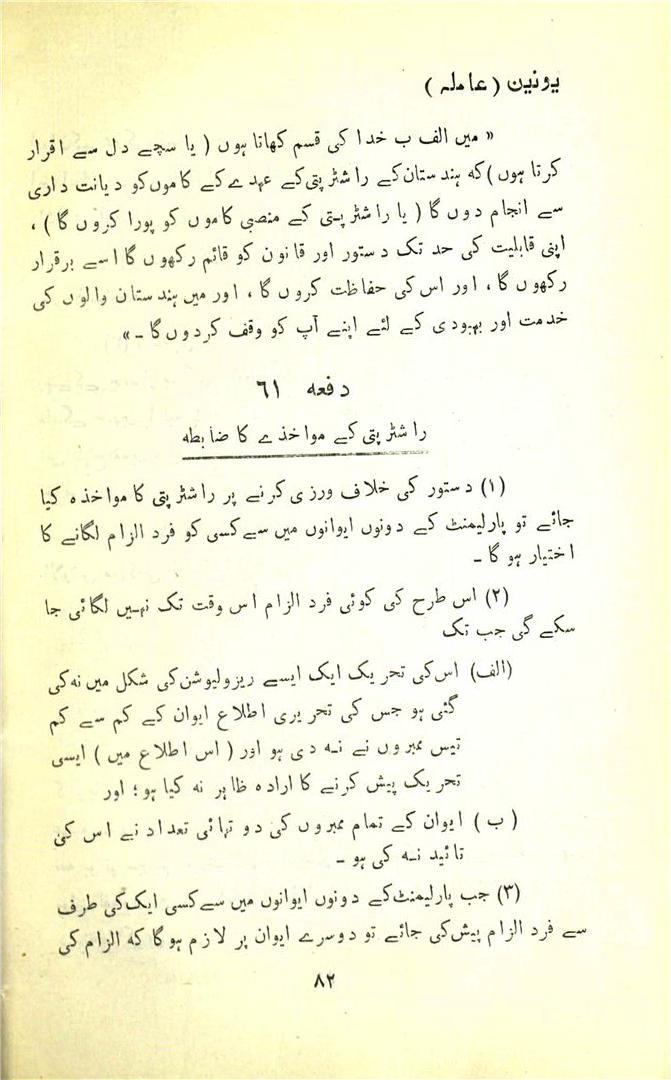 یونین (عاملہ)
« میں الف ب خدا کی قسم کھاتا ہوں (یا سچے دل سے اقرار
کرتا ہوں) کہ ہندستان کے راشٹرپتی کے عہدے کے کاموں کو دیانت داری
سے انجام دوں گا (یا راشٹرپتی کے منصبی کاموں کو پورا کروں گا)،
اپنی قابلیت کی حد تک دستور اور قانون کو قائم رکھوں گا اسے برقرار
رکھوں گا، اور اس کی حفاظت کروں گا، اور میں ہندستان والوں کی
خدمت اور بہبودی کے لئے اپنے آپ کو وقف کردوں گا ۔»
دفعہ ٦١
راشٹرپتی کے مواخذے کا ضابطہ
(١) دستور کی خلاف ورزی کرنے پر راشٹرپتی کا مواخذہ کیا
جائے تو پارلیمنٹ کے دونوں ایوانوں میں سے کسی کو فرد الزام لگانے کا
اختیار ہو گا ۔
(٢) اس طرح کی کوئی فرد الزام اس وقت تک نہیں لگائی جا
سکے گی جب تک
(الف) اس کی تحریک ایک ایسے ریزولیوشن کی شکل میں نہ کی
گئی ہو جس کی تحریری اطلاع ایوان کے کم سے کم
تیس ممبروں نے نہ دی ہو اور (اس اطلاع میں) ایسی
تحریک پیش کرنے کا ارادہ ظاہر نہ کیا ہو؛ اور
(ب) ایوان کے تمام ممبروں کی دو تہائی تعداد نے اس کی
تائید نہ کی ہو ۔
(٣) جب پارلیمنٹ کے دونوں ایوانوں میں سے کسی ایک کی طرف
سے فرد الزام پیش کی جائے تو دوسرے ایوان پر لازم ہوگا کہ الزام کی
٨٢